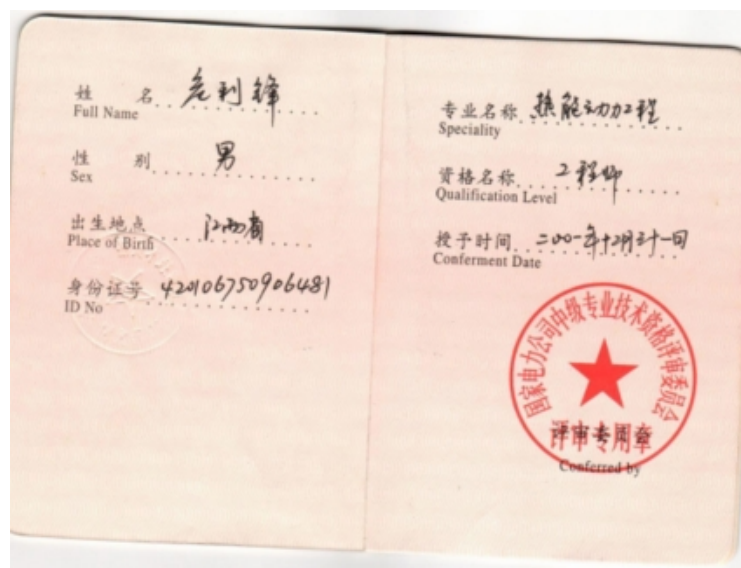 姓 名 危利锋
Full Name
性 别 男
Sex
出生地点 江西省
Place of Birth
身份证号 420106750906481
ID No
专业名称 热能动力工程
Speciality
资格名称 工程师
Qualification Level
授予时间 二00一年十二月三十一日
Conferment Date
国家电力公司中级专业技术资格评审委员会
评审专用章
Conferred by